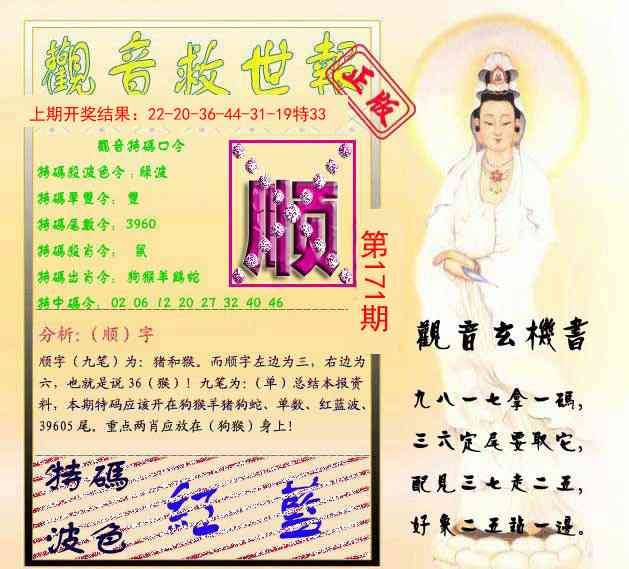 觀音救世報
正版
上期开奖结果：22-20-36-44-31-19特33
觀音特碼口令
特碼殺波色令：綠波
特碼單雙令： 雙
特碼尾數令：3960
特碼殺肖令： 鼠
特碼出肖令： 狗猴羊鷄蛇
特中碼令：02 06 12 20 27 32 40 46
顺
第171期
分析：（顺）字
顺字（九笔）为：猪和猴。而顺字左边为三，右边为
六，也就是说36（猴）！九笔为：（单）总结本报资
料，本期特码应该开在狗猴羊猪狗蛇、单数、红蓝波、
39605尾。重点两肖应放在（狗猴）身上！
特碼
波色
紅 藍
觀音玄機書
九八一七拿一碼，
三六定尾要取它，
配見三七走二五，
好象二五站一邊。